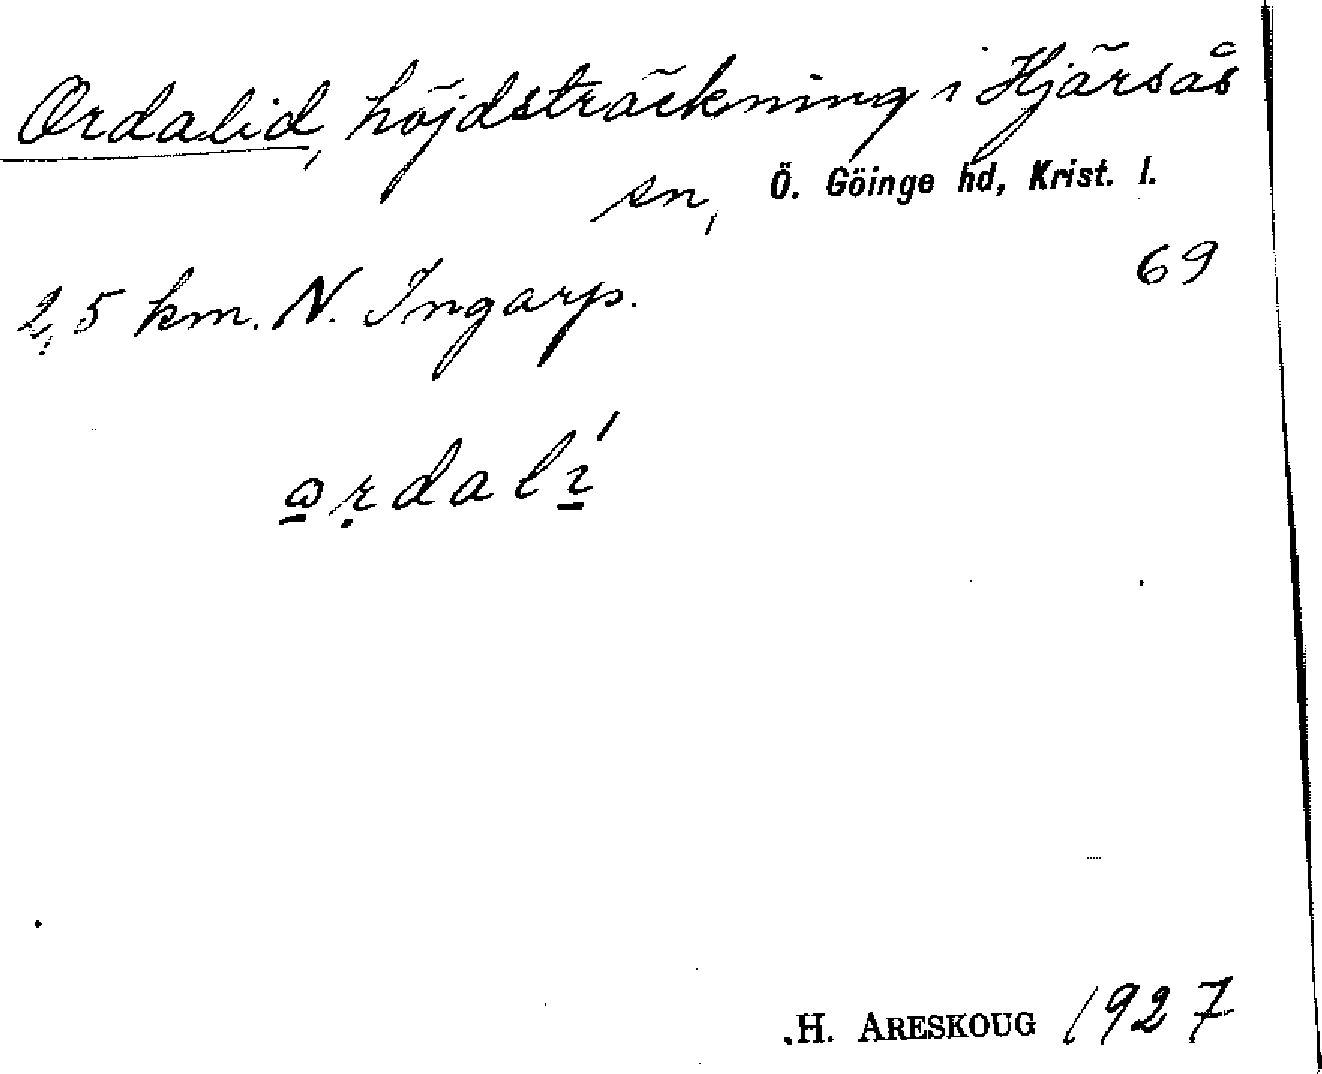 Ordalid, höjdsträckning i Hjärsås
sn, Ö. Göinge hd, Krist. l.
69
2,5 km. N. Ingarp.
ordalí
H. ARESKOUG 1927